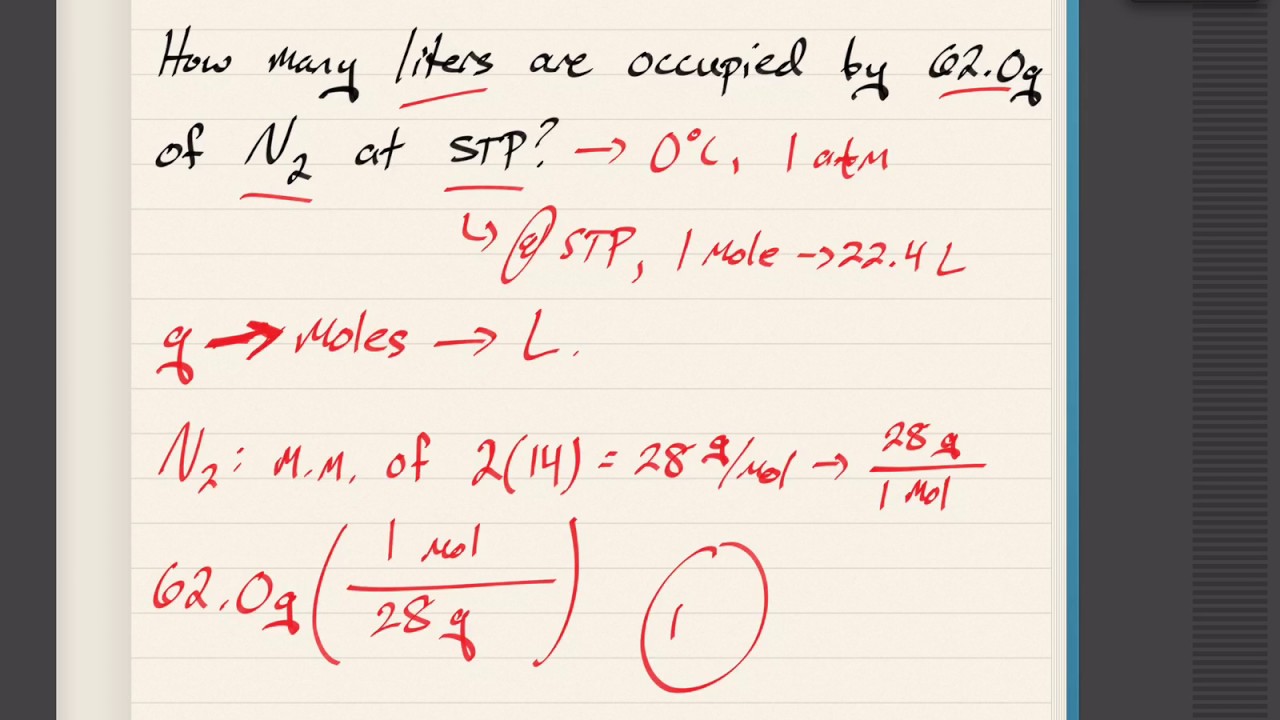 How many liters are occupied by 62.0g
of N₂ at STP? → 0°C, 1 atm
↳ @ STP, 1 Mole → 22.4 L
g → Moles → L.
N₂: M.M. of 2(14) = 28 g/mol → 28 g / 1 Mol
62.0g ( 1 mol / 28 g ) ( 1